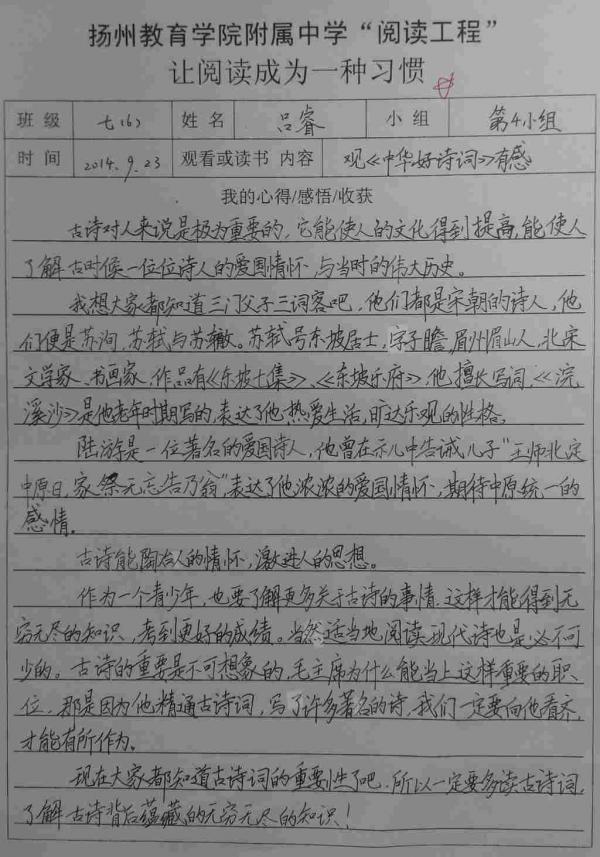 扬州教育学院附属中学“阅读工程”
让阅读成为一种习惯
班级 七(6) 姓名 吕睿 小组 第4小组
时间 2014.9.23 观看或读书 内容 观《中华好诗词》有感
我的心得/感悟/收获
古诗对人来说是极为重要的,它能使人的文化得到提高,能使人
了解古时候一位位诗人的爱国情怀,与当时的伟大历史。
我想大家都知道三门父子三词客吧,他们都是宋朝的诗人,他
们便是苏洵、苏轼与苏辙。苏轼号东坡居士,字子瞻,眉州眉山人,北宋
文学家、书画家,作品有《东坡七集》、《东坡乐府》,他擅长写词,《浣
溪沙》是他老年时期写的,表达了他热爱生活,旷达乐观的性格。
陆游是一位著名的爱国诗人,他曾在示儿中告诫儿子“王师北定
中原日,家祭无忘告乃翁”,表达了他浓浓的爱国情怀,期待中原统一的
感情。
古诗能陶冶人的情怀,激进人的思想。
作为一个青少年,也要了解更多关于古诗的事情,这样才能得到无
穷无尽的知识,考到更好的成绩。当然适当地阅读现代诗也是必不可
少的。古诗的重要是不可想象的,毛主席为什么能当上这样重要的职
位,那是因为他精通古诗词,写了许多著名的诗,我们一定要向他看齐,
才能有所作为。
现在大家都知道古诗词的重要性了吧,所以一定要多读古诗词,
了解古诗背后蕴藏的无穷无尽的知识!